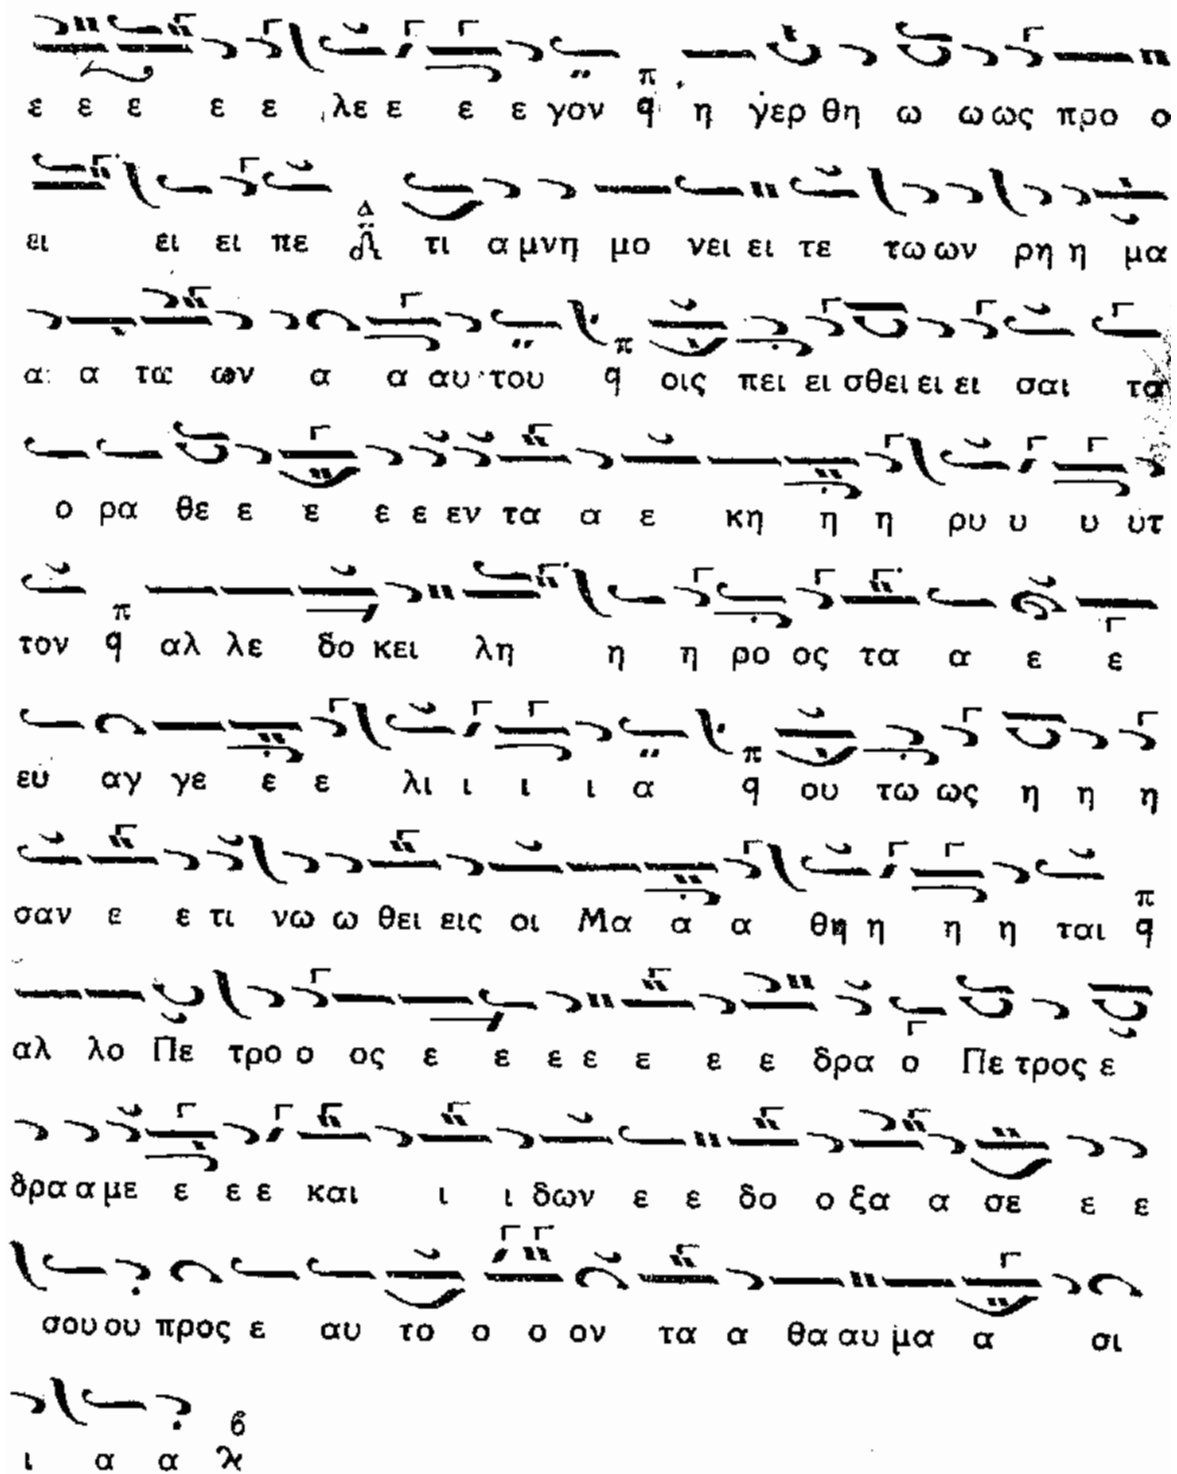 ε ε ε ε ε λε ε ε ε γον π q η γερ θη ω ω ως προ ο
ει ει ει πε Δ τι α μνη μο νει ει τε τω ων ρη η μα
α α τω ων α α αυ του π q οις πει ει σθει ει ει σαι τα
ο ρα θε ε ε ε ε εν τα α ε κη η η ρυ υ υ υτ
τον π q αλ λε δο κει λη η η ρο ος τα α ε ε
ευ αγ γε ε ε λι ι ι ι α π q ου τω ως η η η
σαν ε ε τι νω ω θει εις οι Μα α α θη η η η ται π q
αλ λο Πε τρο ο ος ε ε ε ε ε ε ε δρα ο Πε τρος ε
δρα α με ε ε ε και ι ι δων ε ε δο ο ξα α σε ε ε
σου ου προς ε αυ το ο ο ον τα α θα αυ μα α σι
ι α α